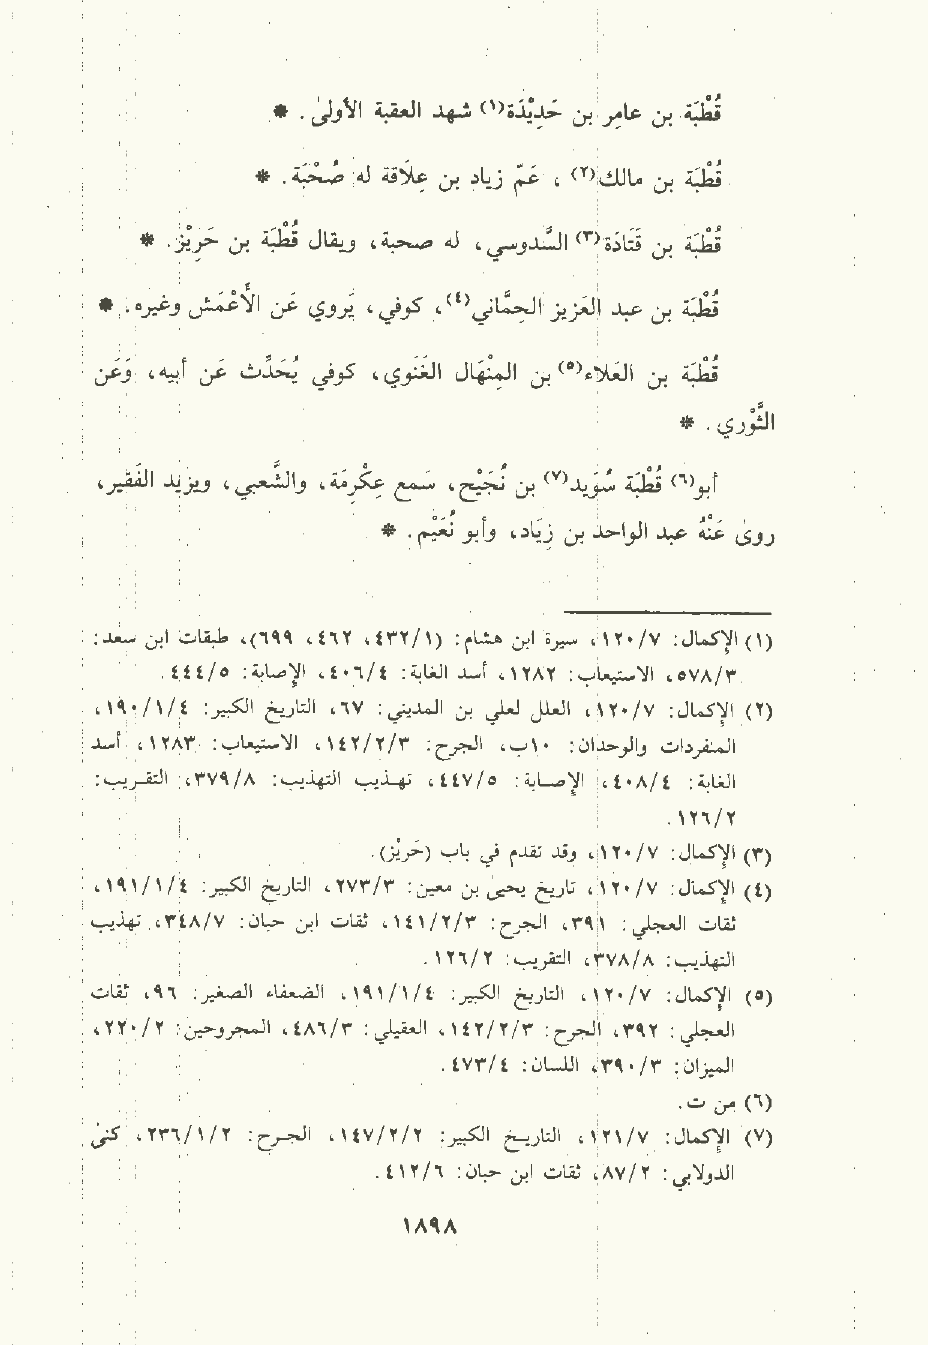 قُطْبَة بن عامِر بن حَدِيْدَة(١) شهد العقبة الأولىٰ. *
قُطْبَة بن مالك(٢)، عَمّ زياد بن عِلَاقة له صُحْبَة. *
قُطْبَة بن قَتَادَة(٣) السَّدوسي، له صحبة، ويقال قُطْبَة بن حَرِيْز. *
قُطْبَة بن عبد العَزيز الحِمَّاني(٤)، كوفي، يَروي عَن الأَعْمَش وغيره. *
قُطْبَة بن العَلاء(٥) بن المِنْهَال الغَنَوي، كوفي يُحَدِّث عَن أبيه، وَعَن
الثَّوْري. *
أبو(٦) قُطْبَة سُوَيد(٧) بن نُجَيْح، سَمع عِكْرِمَة، والشَّعبي، ويزيد الفَقير،
روىٰ عَنْهُ عبد الواحد بن زِيَاد، وأبو نُعَيْم. *
(١) الإكمال: ١٢٠/٧، سيرة ابن هشام: (٤٣٢/١، ٤٦٢، ٦٩٩)، طبقات ابن سعد:
٥٧٨/٣، الاستيعاب: ١٢٨٢، أسد الغابة: ٤٠٦/٤، الإصابة: ٤٤٤/٥.
(٢) الإكمال: ١٢٠/٧، العلل لعلي بن المديني: ٦٧، التاريخ الكبير: ١٩٠/١/٤،
المنفردات والوحدان: ١٠ب، الجرح: ١٤٢/٢/٣، الاستيعاب: ١٢٨٣، أسد
الغابة: ٤٠٨/٤، الإصابة: ٤٤٧/٥، تهذيب التهذيب: ٣٧٩/٨، التقريب:
١٢٦/٢.
(٣) الإكمال: ١٢٠/٧، وقد تقدم في باب (حَريْز).
(٤) الإكمال: ١٢٠/٧، تاريخ يحيىٰ بن معين: ٢٧٣/٣، التاريخ الكبير: ١٩١/١/٤،
ثقات العجلي: ٣٩١، الجرح: ١٤١/٢/٣، ثقات ابن حبان: ٣٤٨/٧، تهذيب
التهذيب: ٣٧٨/٨، التقريب: ١٢٦/٢.
(٥) الإكمال: ١٢٠/٧، التاريخ الكبير: ١٩١/١/٤، الضعفاء الصغير: ٩٦، ثقات
العجلي: ٣٩٢، الجرح: ١٤٢/٢/٣، العقيلي: ٤٨٦/٣، المجروحين: ٢٢٠/٢،
الميزان: ٣٩٠/٣، اللسان: ٤٧٣/٤.
(٦) من ت.
(٧) الإكمال: ١٢١/٧، التاريخ الكبير: ١٤٧/٢/٢، الجرح: ٢٣٦/١/٢، كنىٰ
الدولابي: ٨٧/٢، ثقات ابن حبان: ٤١٢/٦.
١٨٩٨